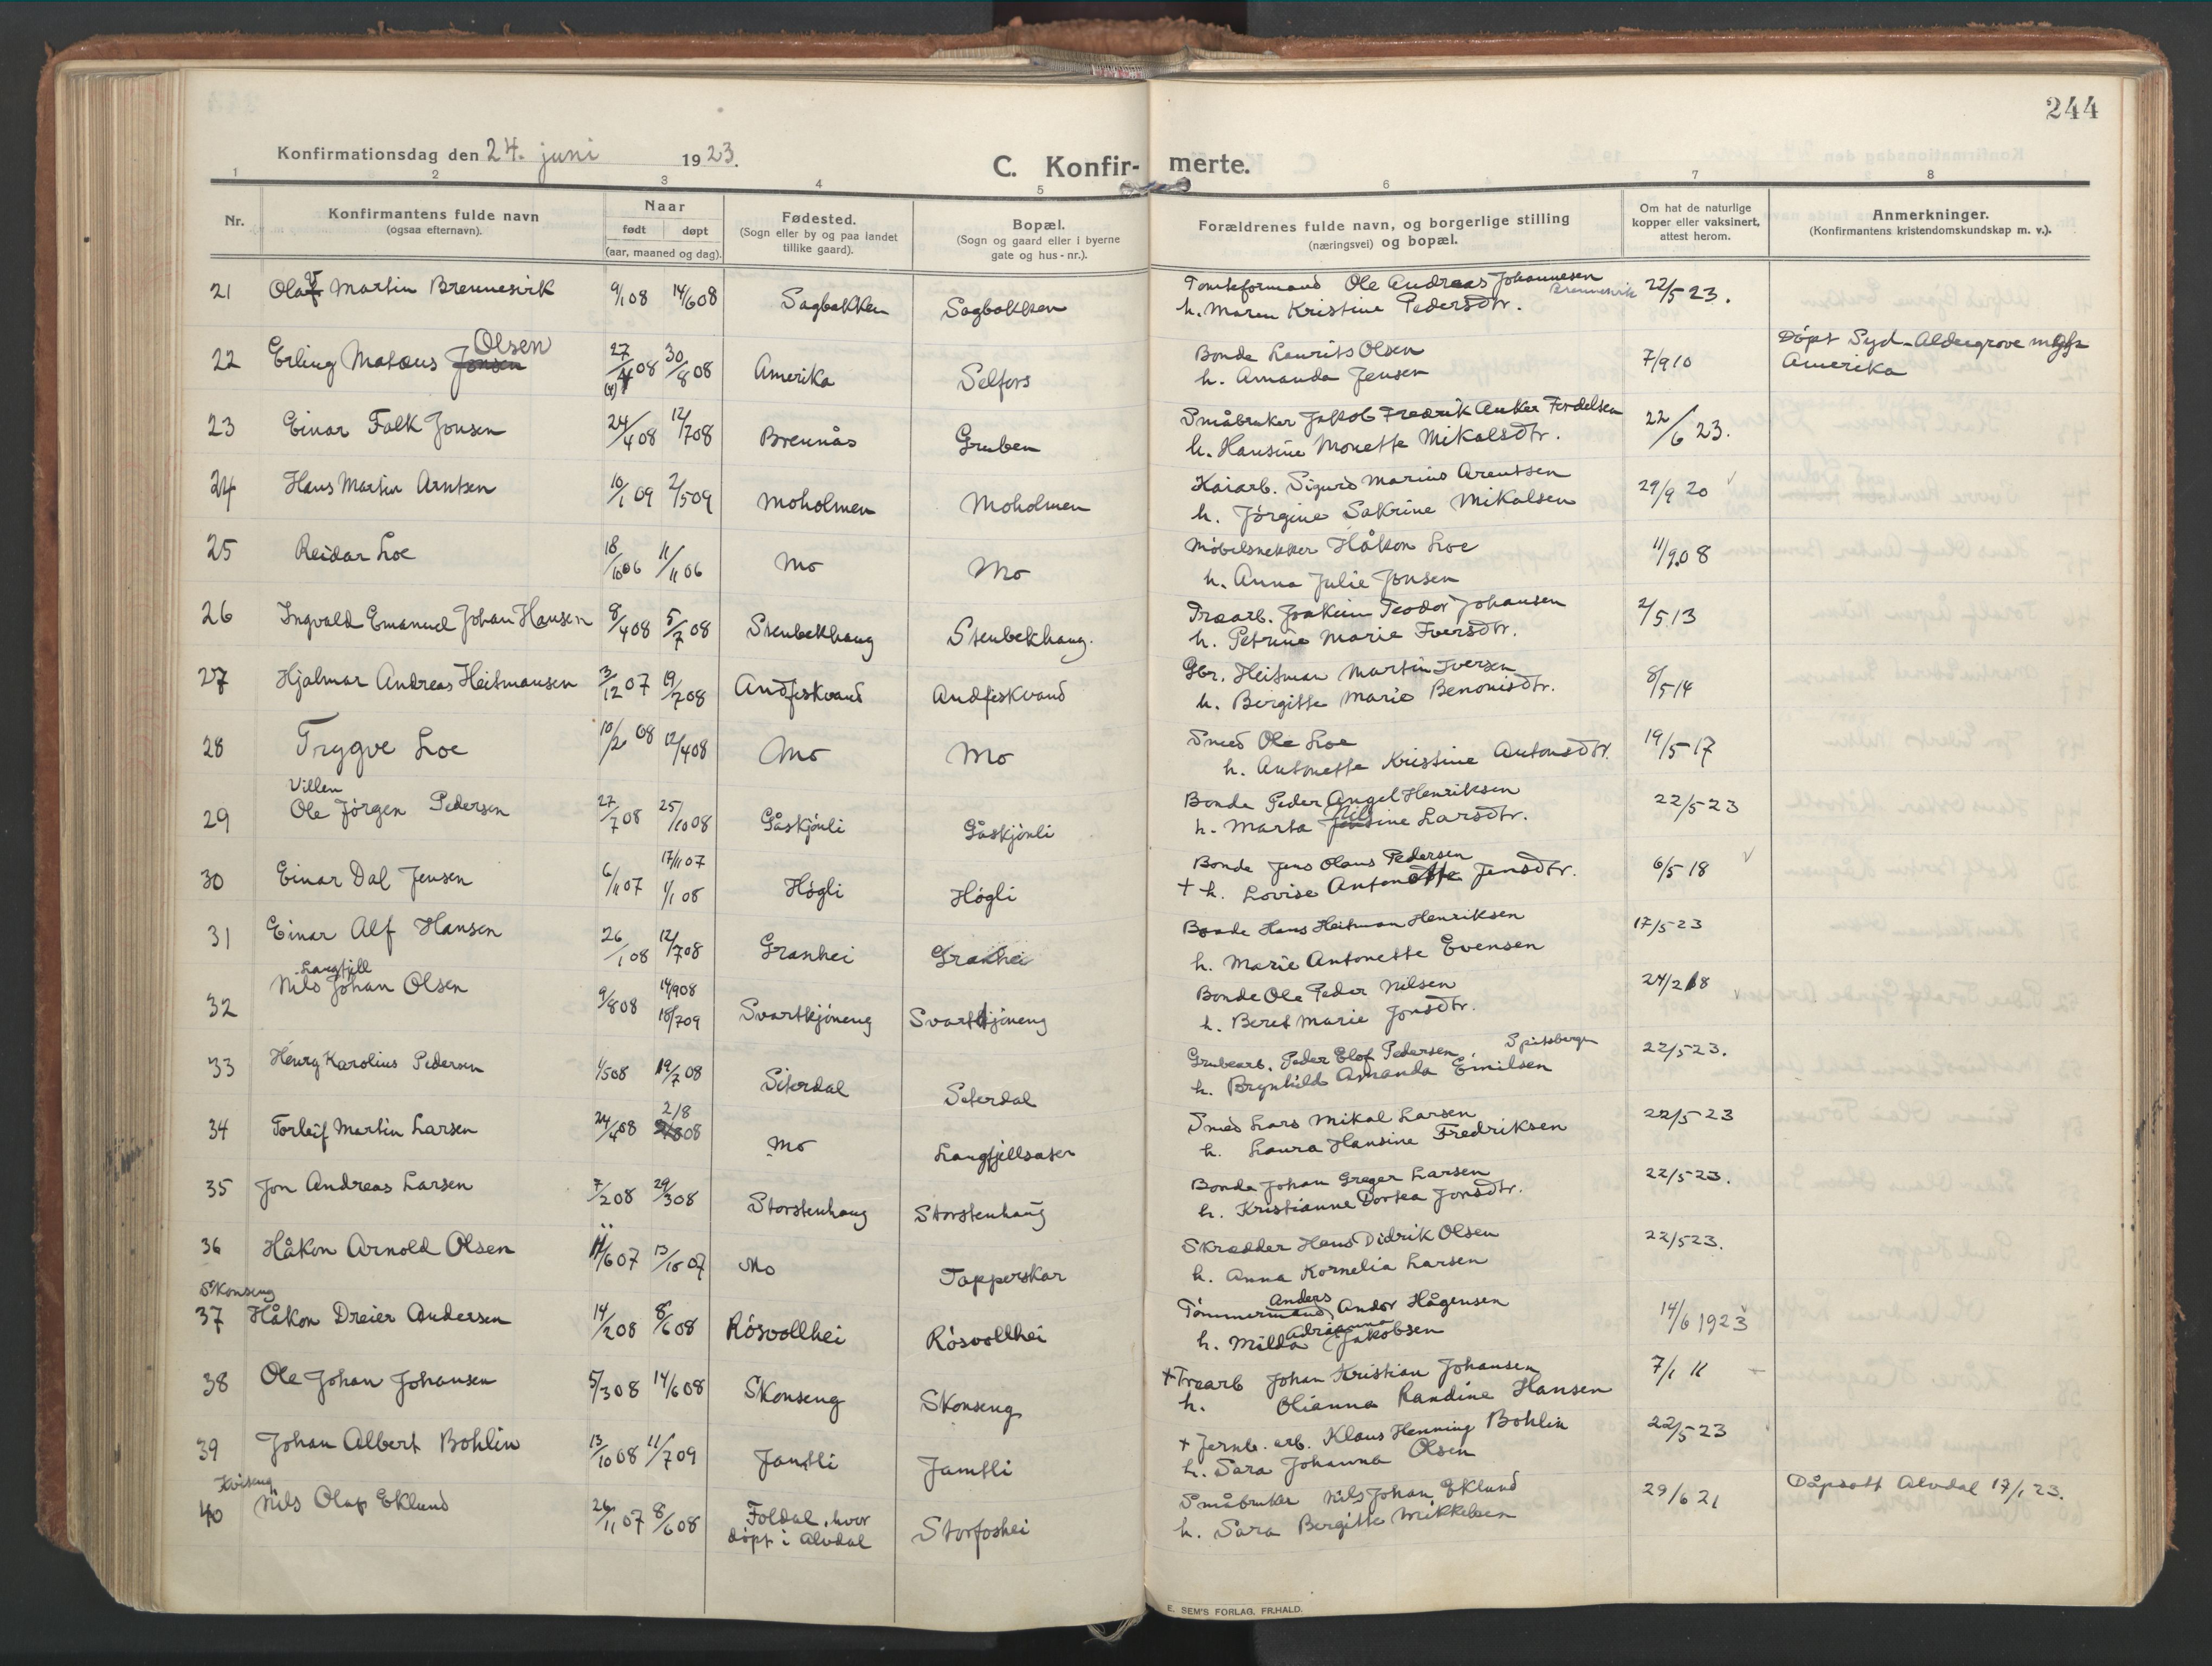 244
Konfirmationsdag den 24. juni 1923.
C. Konfir- merte.
1 2 3 4 5 6 7 8
Nr.
Konfirmantens fulde navn
(ogsaa efternavn).
Naar
født døpt
(aar, maaned og dag).
Fødested.
(Sogn eller by og paa landet
tillike gaard).
Bopæl.
(Sogn og gaard eller i byerne
gate og hus-nr.).
Forældrenes fulde navn, og borgerlige stilling
(næringsvei) og bopæl.
Om hat de naturlige
kopper eller vaksinert,
attest herom.
Anmerkninger.
(Konfirmantens kristendomskundskap m. v.).
21 Olaf Martin Brennesvik 9/1 08 14/6 08 Sagbakken Sagbakken Tomteformand Ole Andreas Johannesen Brennesvik 22/5 23.
h. Maren Kristine Pedersdtr.
22 Erling Mataus Jensen Olsen 27/4 08 30/8 08 Amerika Selfors Bonde Laurits Olsen 7/9 10 Döpt Syd-Aldergrove
h. Amanda Jensen Amerika
23 Einar Falk Jonsen 24/4 08 12/7 08 Brennås Gruben Småbruker Jakob Fredrik Anker 22/6 23.
h. Hansine Monette Mikalsdtr.
24 Hans Martin Arntsen 10/1 09 2/5 09 Moholmen Moholmen Kaiarb. Sigurd Marius Arentsen 29/9 20
h. Jörgine Sakrine Mikalsen
25 Reidar Loe 18/10 06 11/11 06 Mo Mo Möbelsnekker Håkon Loe 11/9 08
h. Anna Julie Jonsen
26 Ingvald Emanuel Johan Hansen 8/4 08 5/7 08 Stenbekhaug Stenbekhaug. Træarb. Joakim Teodor Johansen 2/5 13
h. Petrine Marie Iversdtr.
27 Hjalmar Andreas Heitmansen 3/12 07 19/2 08 Andfiskvand Andfiskvand Gbr. Heitman Martin Iversen 8/5 14
h. Birgitte Marie Benonisdtr.
28 Trygve Loe 10/2 08 12/4 08 Mo Mo Smed Ole Loe 19/5 17
h. Antonette Kristine Antonsdtr.
Villen
29 Ole Jörgen Pedersen 27/7 08 25/10 08 Gåskjönli Gåskjönli Bonde Peder Angel Henriksen 22/5 23
h. Marta Nilsine Larsdtr.
30 Einar Dal Jensen 6/11 07 17/11 07 1/1 08 Högli Högli Bonde Jens Olaus Pedersen 6/5 18
+ h. Lovise Antonette Jensdtr.
31 Einar Alf Hansen 26/1 08 12/7 08 Granhei Granhei Bonde Hans Heitman Henriksen 17/5 23
h. Marie Antonette Evensen
Langfjell
32 Nils Johan Olsen 9/8 08 14/9 08 18/7 09 Svartkjöneng Svartkjöneng Bonde Ole Peder Nilsen 24/2 18
h. Beret Marie Jonsdtr.
33 Henry Karolius Pedersen 1/5 08 19/7 08 Siterdal Seterdal Grubearb. Peder Elof Pedersen, Spitsbergen 22/5 23.
h. Brynhild Amanda Emilsen
34 Torleif Martin Larsen 24/4 08 2/8 08 Mo Langfjellsåsen Smed Lars Mikal Larsen 22/5 23
h. Laura Hansine Fredriksen
35 Jon Andreas Larsen 7/2 08 29/3 08 Storstenhaug Storstenhaug Bonde Johan Greger Larsen 22/5 23.
h. Kristianne Dortea Jonsdtr.
36 Håkon Arnold Olsen 11/6 07 13/10 07 Mo Tapperskar Skrædder Hans Didrik Olsen 22/5 23.
h. Anna Kornelia Larsen
Skonseng
37 Håkon Dreier Andersen 14/2 08 8/6 08 Rösvollhei Rösvollhei Tömmermand Anders Andor Hågensen 14/6 1923
h. Milda Adrianna Jakobsen
38 Ole Johan Johansen 5/3 08 14/6 08 Skonseng Skonseng + Træarb Johan Kristian Johansen 7/1 11
h. Olianna Randine Hansen
39 Johan Albert Bohlin 13/10 08 11/7 09 Jamtli Jamtli + Jernb. arb. Klaus Henning Bohlin 22/5 23
h. Sara Johanna Olsen
40 Nils Olaf Eklund 26/11 07 8/6 08 Foldal, hvor Storfoshei Småbruker Nils Johan Eklund 29/6 21 Dåpsatt Alvdal 17/1 23.
döpt i Alvdal h. Sara Bergitte Mikkelsen
E. SEM'S FORLAG, FR.HALD.